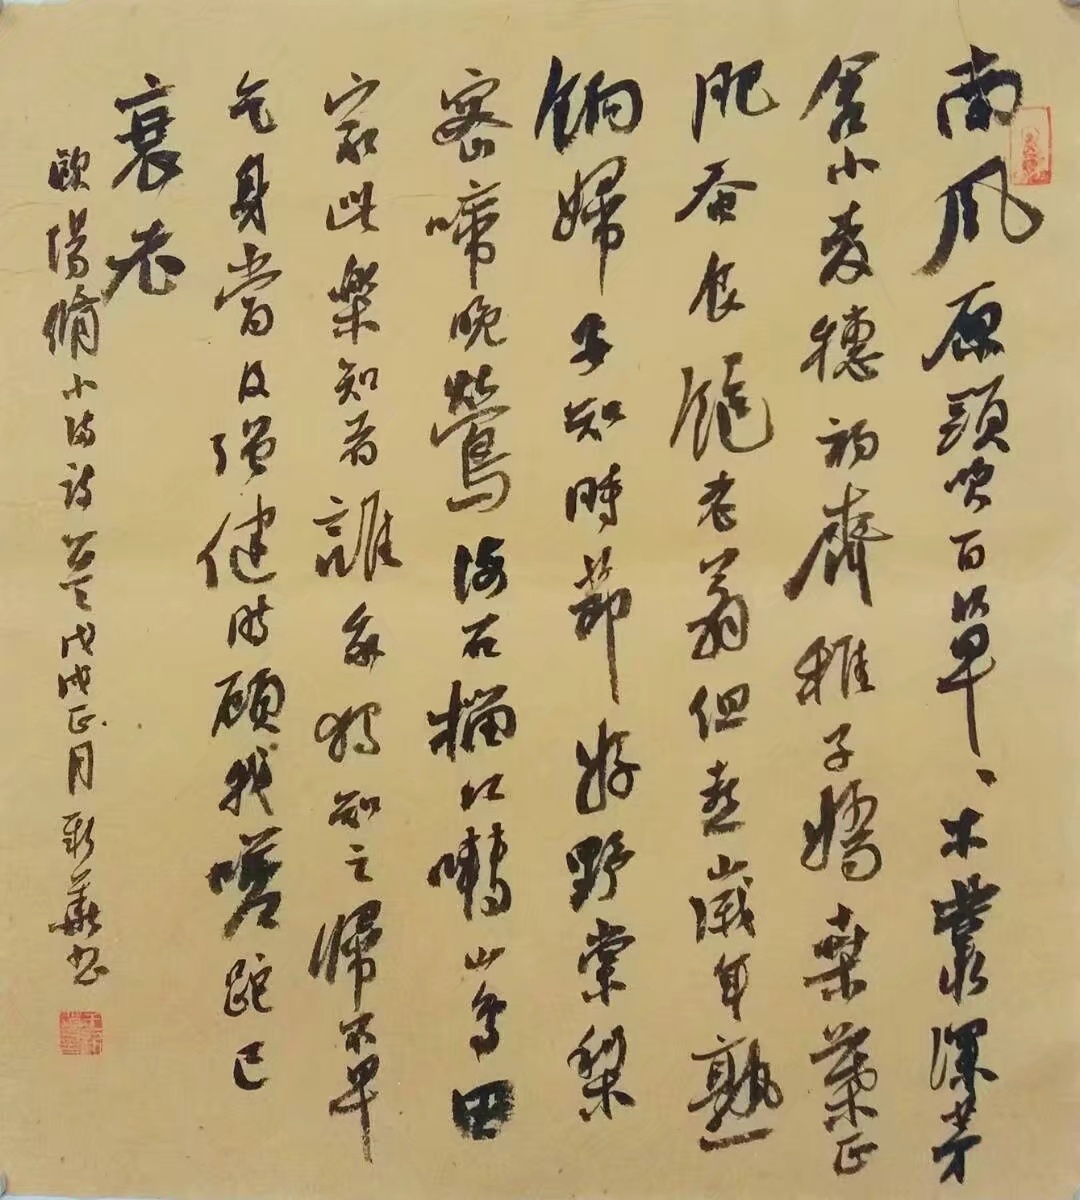 南風原頭吹百草、木叢深茅
舍小麥穗初齊稚子嬌桑葉正
肥蚕食飽老翁但喜歲年熟
餉婦安知時節好野棠梨
密啼晚鶯海石榴紅囀山鳥田
家此樂知者誰我獨知之歸不早
乞身當及强健时顧我嗟跎已
衰老
歐陽脩小满詩戊戌正月新華书